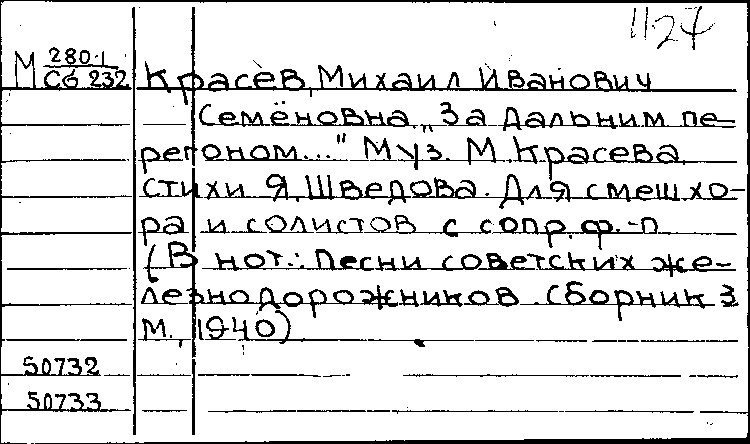 1127
М 280.1
Сб 232
Красев, Михаил Иванович
Семёновна. „За дальним пе-
регоном..." Муз. М. Красева,
стихи Я. Шведова. Для смеш. хо-
ра и солистов с сопр. ф.-п
(В нот.: Песни советских же-
лезнодорожников. Сборник 3
М., 1940)
50732
50733